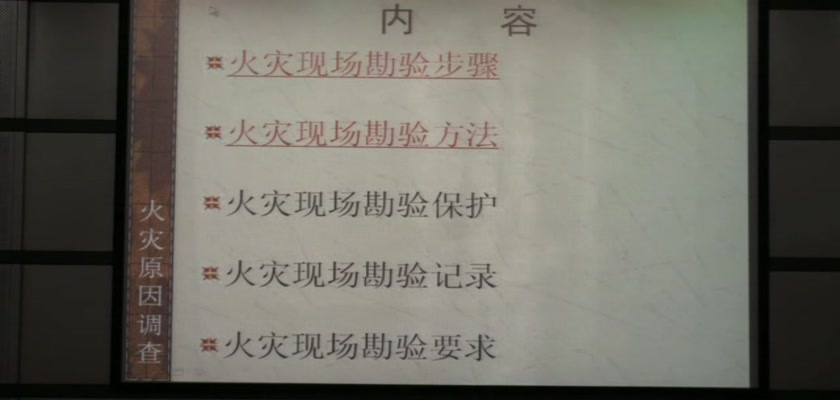 内 容
火灾现场勘验步骤
火灾现场勘验方法
火灾现场勘验保护
火灾现场勘验记录
火灾现场勘验要求
火灾原因调查